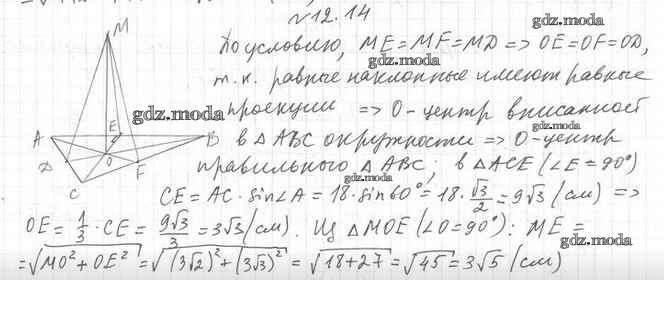 N12.14
gdz.moda
M
По условию, ME=MF=MD => OE=OF=OD,
gdz.moda
т.к. равные наклонные имеют равные
gdz.moda
проекции => O-центр вписанной
A E B
в △ABC окружности => O-центр
gdz.moda
D O F
правильного △ABC; в △ACE (∠E=90°)
gdz.moda
C
CE = AC · sin∠A = 18 · sin60° = 18 · √3/2 = 9√3 (см) =>
gdz.moda
OE = 1/3 · CE = 9√3/3 = 3√3 (см). Из △MOE (∠O=90°): ME =
gdz.moda
= √(MO² + OE²) = √((3√2)² + (3√3)²) = √(18+27) = √45 = 3√5 (см)